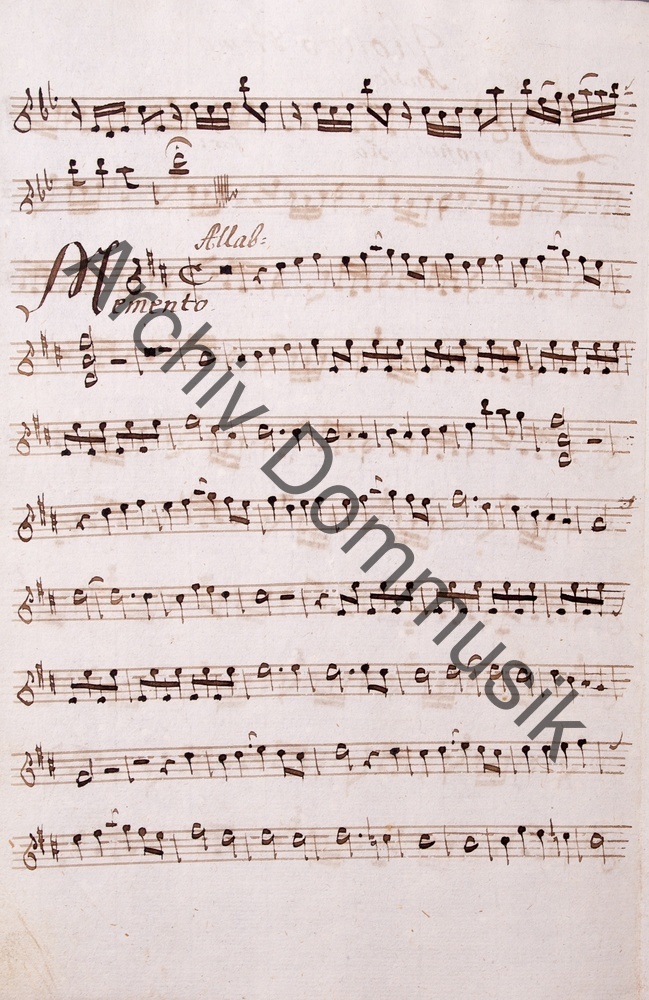 Allab:
Memento
Archiv Dommusik